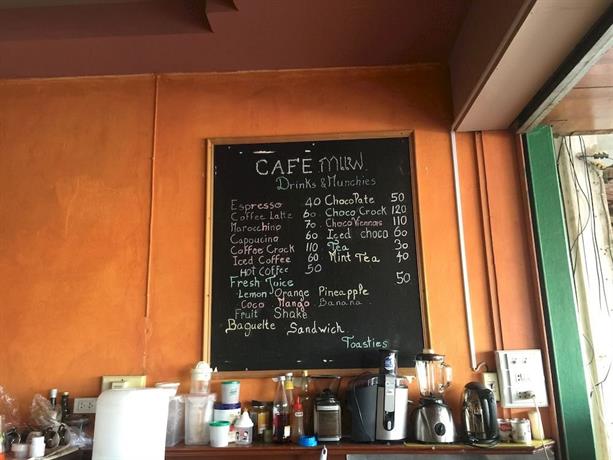 CAFÉ กาแฟ.
Drinks & Munchies
Espresso 40
Coffee Latte 60
Marocchino 70
Capoucino 60
Coffee Crock 110
Iced Coffee 60
Hot Coffee 50
Chocolate 50
Choco Crock 120
Choco Viennois 110
Iced choco 60
Tea 30
Mint Tea 40
Fresh Juice 50
Lemon Orange Pineapple
Coco Mango Banana
Fruit Shake
Baguette Sandwich
Toasties